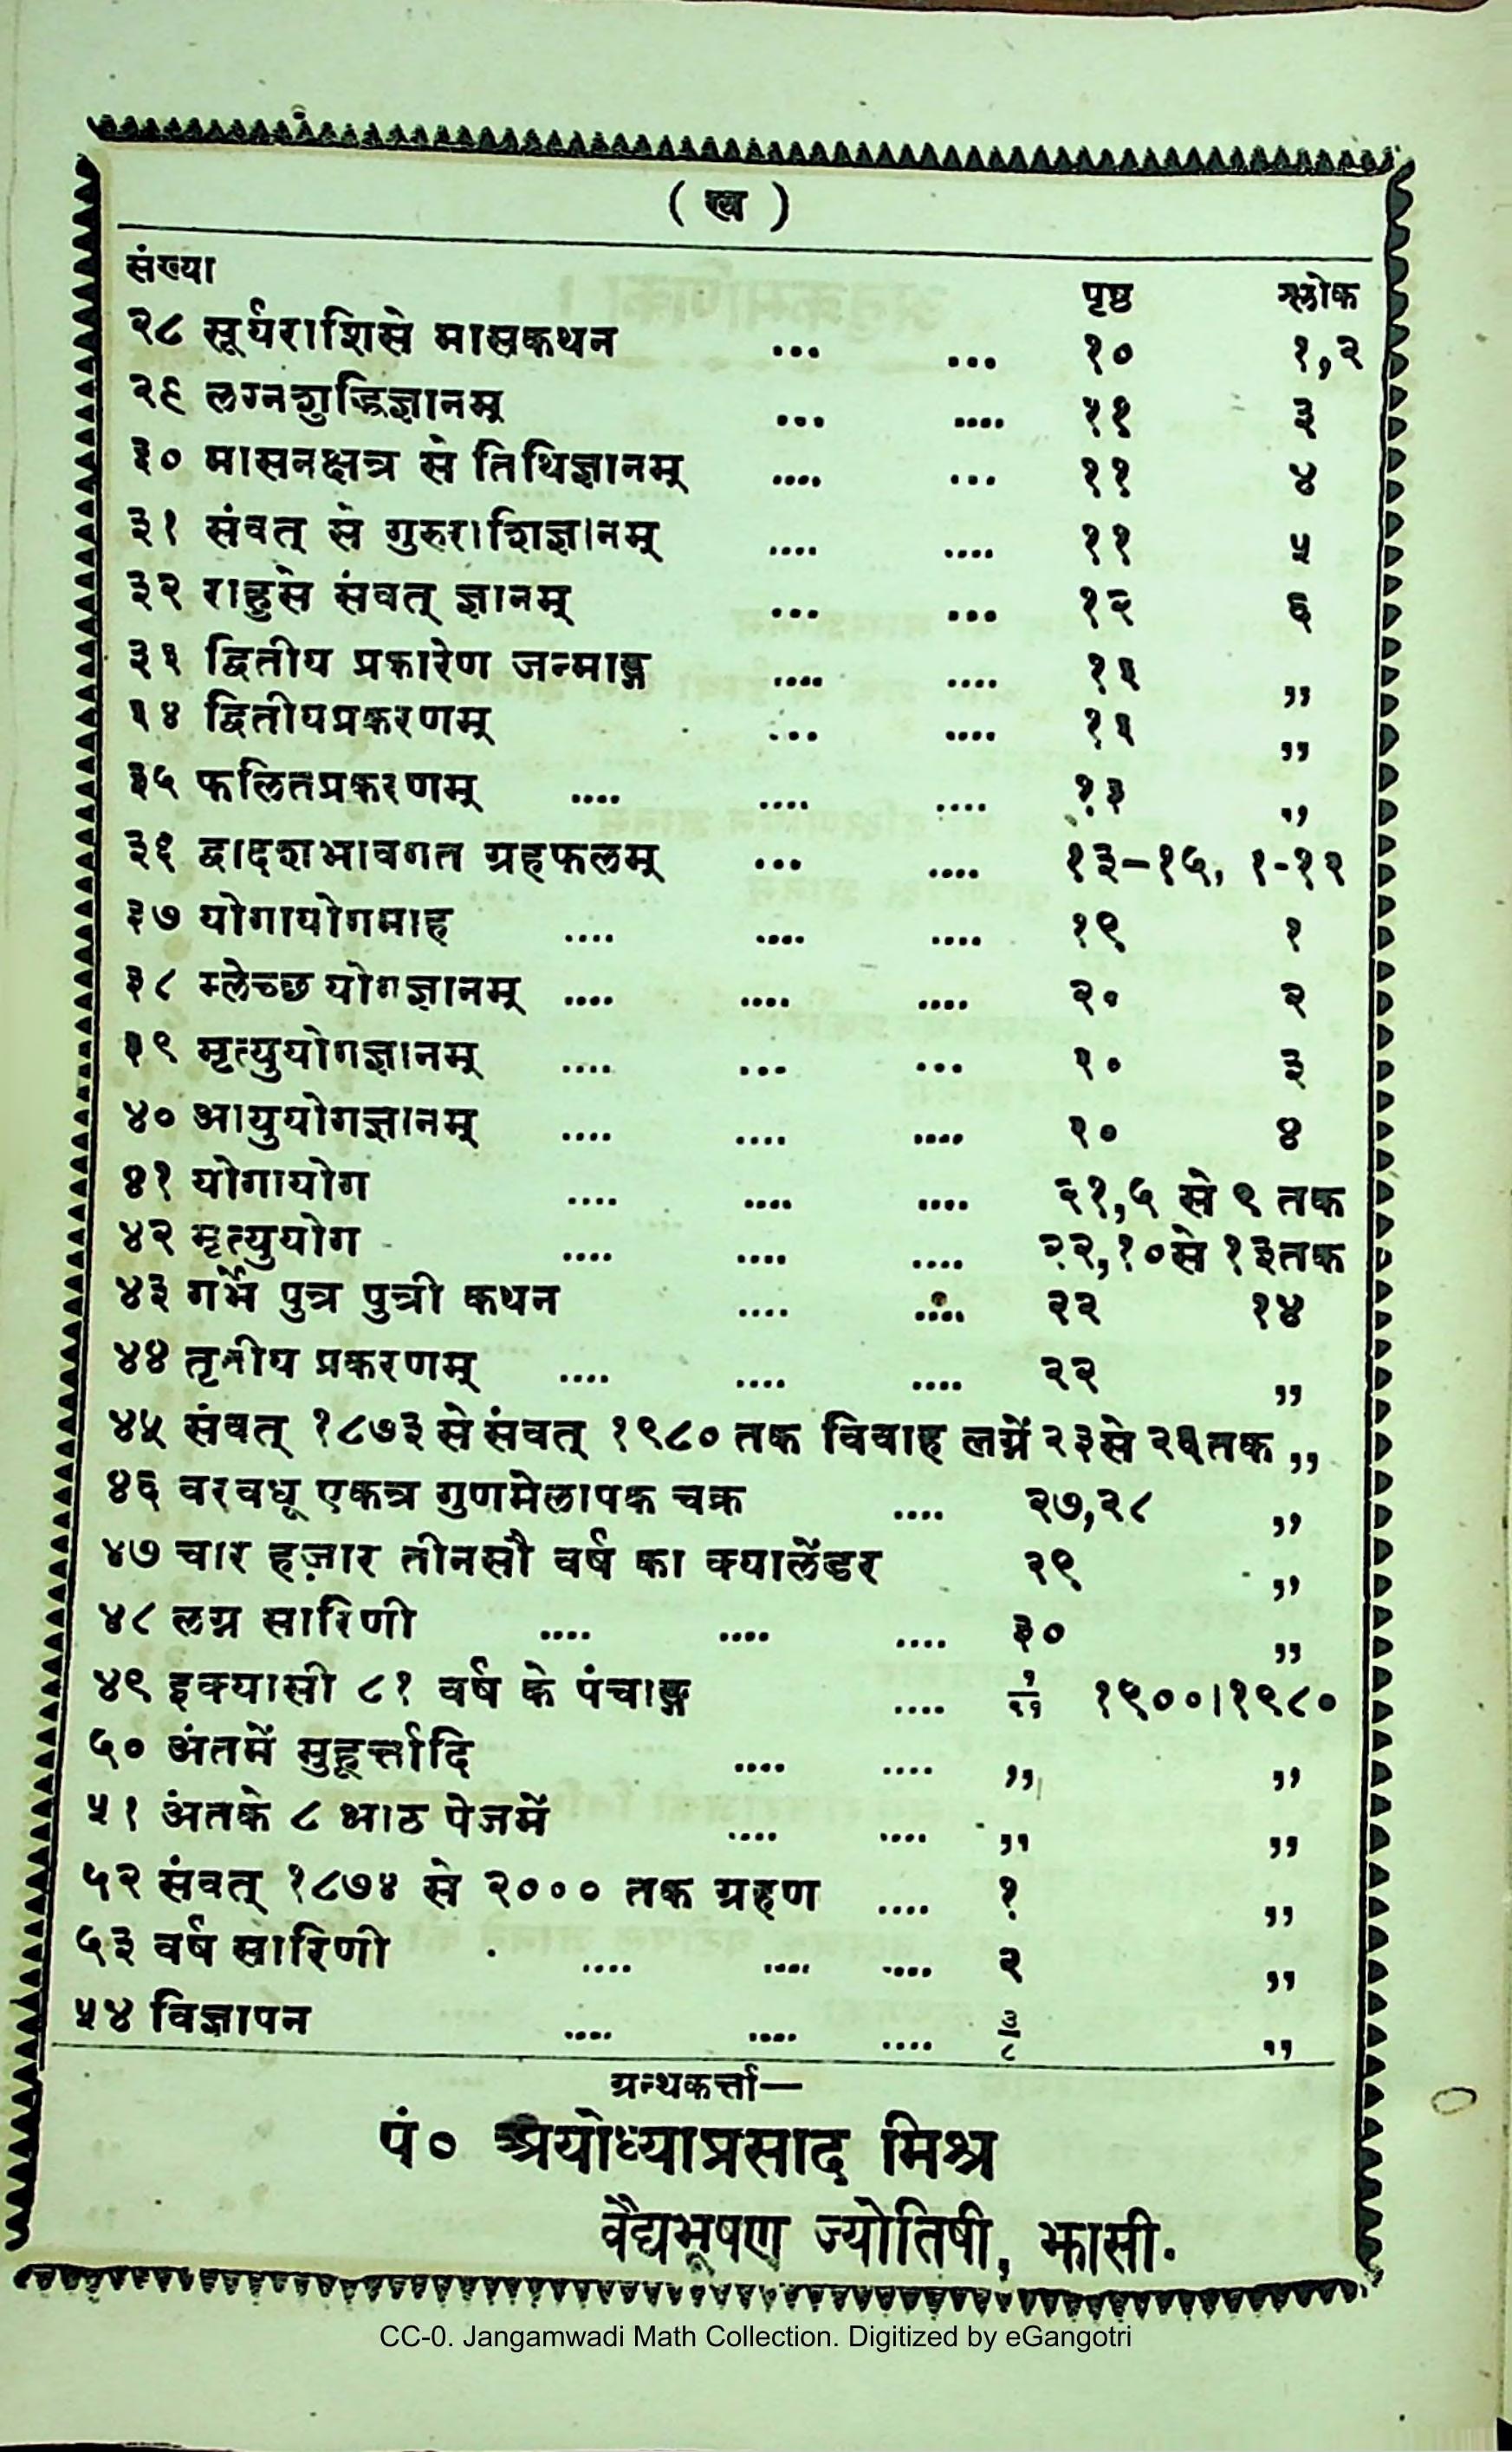 ( ख )
संख्या पृष्ठ श्लोक
२८ सूर्यराशिसे मासकथन ... ... १० १,२
२९ लग्नशुद्धिज्ञानम् ... .... ११ ३
३० मासनक्षत्र से तिथिज्ञानम् .... ... ११ ४
३१ संवत् से गुरुराशिज्ञानम् .... .... ११ ५
३२ राहुसे संवत् ज्ञानम् ... ... १२ ६
३३ द्वितीय प्रकारेण जन्माङ्ग .... .... १३ ,,
३४ द्वितीयप्रकरणम् ... .... १३ ,,
३५ फलितप्रकरणम् .... .... .... १३ ,,
३६ द्वादशभावगत ग्रहफलम् ... .... १३–१५, १-१२
३७ योगायोगमाह .... .... .... १९ १
३८ म्लेच्छ योगज्ञानम् .... .... .... २० २
३९ मृत्युयोगज्ञानम् .... ... ... २० ३
४० आयुयोगज्ञानम् .... .... .... २० ४
४१ योगायोग .... .... .... २१,५ से ९ तक
४२ मृत्युयोग .... .... .... २२,१०से १३तक
४३ गर्भे पुत्र पुत्री कथन .... .... २२ १४
४४ तृतीय प्रकरणम् .... .... .... २२ ,,
४५ संवत् १८७३ से संवत् १९८० तक विवाह लग्नें २३से २६तक ,,
४६ वरवधू एकत्र गुणमेलापक चक्र .... २७,२८ ,,
४७ चार हज़ार तीनसौ वर्ष का क्यालेंडर २९ ,,
४८ लग्न सारिणी .... .... .... ३० ,,
४९ इक्यासी ८१ वर्ष के पंचाङ्ग .... १९००।१९८०
५० अंतमें मुहूर्त्तादि .... .... ,, ,,
५१ अंतके ८ आठ पेजमें .... .... ,, ,,
५२ संवत् १८७४ से २००० तक ग्रहण .... १ ,,
५३ वर्ष सारिणी .... .... .... २ ,,
५४ विज्ञापन .... .... .... ३/८ ,,
ग्रन्थकर्त्ता—
पं० अयोध्याप्रसाद मिश्र
वैद्यभूषण ज्योतिषी, झासी.
CC-0. Jangamwadi Math Collection. Digitized by eGangotri